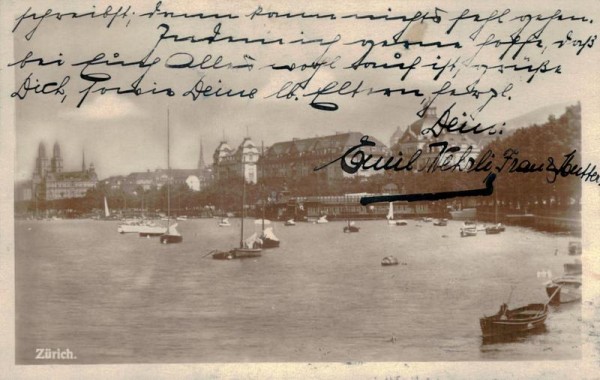 schreibst; denn kann nichts fehl gehen.
Indem ich gerne hoffe, daß
bei Euch Alles wohl auf ist, grüße
Dich, sowie Deine lb. Eltern, herzl.
Dein:
Emil Wehrli, Franz
Zürich.